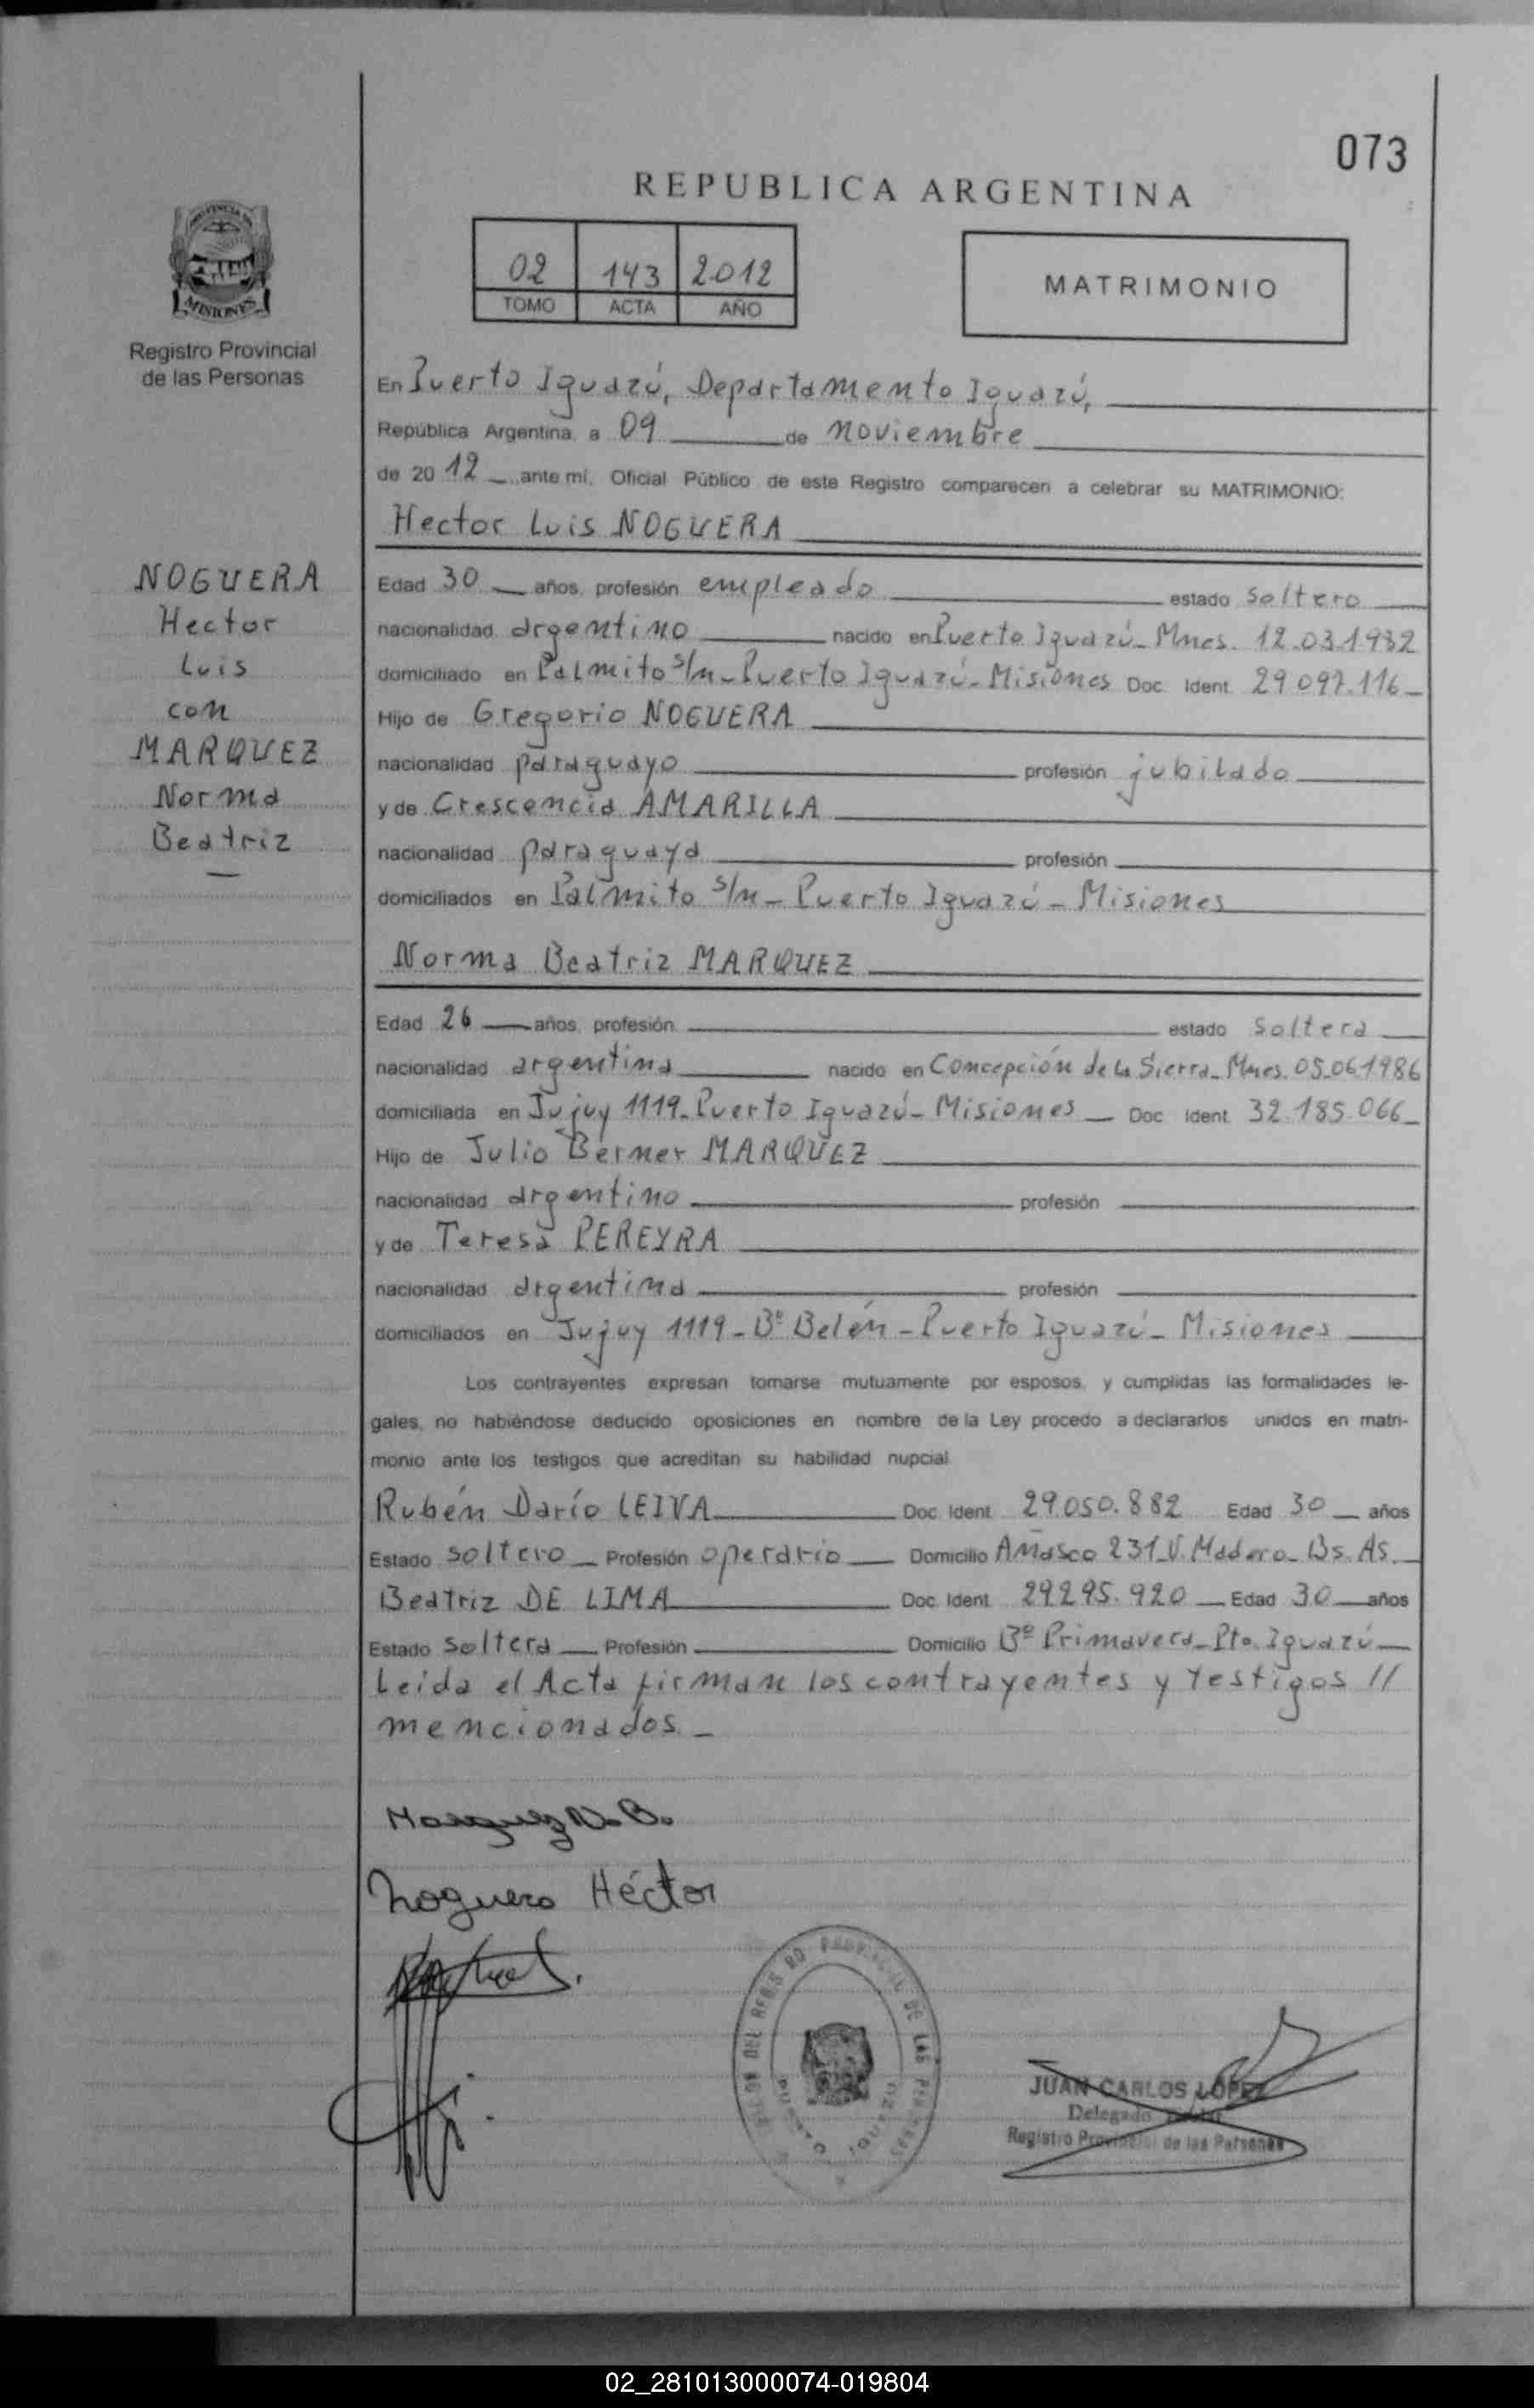 073
REPUBLICA ARGENTINA
02 143 2012
TOMO ACTA AÑO
MATRIMONIO
MISIONES
Registro Provincial
de las Personas
NOGUERA
Hector
Luis
con
MARQUEZ
Norma
Beatriz
En Puerto Iguazú, Departamento Iguazú,
República Argentina, a 09 de noviembre
de 2012 ante mí, Oficial Público de este Registro comparecen a celebrar su MATRIMONIO:
Hector Luis NOGUERA
Edad 30 años, profesión empleado estado soltero
nacionalidad argentino nacido en Puerto Iguazú - Mnes. 12.03.1982
domiciliado en Palmito s/n - Puerto Iguazú - Misiones Doc. Ident. 29.097.116
Hijo de Gregorio NOGUERA
nacionalidad paraguayo profesión jubilado
y de Crescencia AMARILLA
nacionalidad paraguaya profesión
domiciliados en Palmito s/n - Puerto Iguazú - Misiones
Norma Beatriz MARQUEZ
Edad 26 años, profesión estado soltera
nacionalidad argentina nacido en Concepción de la Sierra - Mnes. 05.06.1986
domiciliada en Jujuy 1119 - Puerto Iguazú - Misiones Doc. Ident. 32.185.066
Hijo de Julio Berner MARQUEZ
nacionalidad argentino profesión
y de Teresa PEREYRA
nacionalidad argentina profesión
domiciliados en Jujuy 1119 - Bº Belén - Puerto Iguazú - Misiones
Los contrayentes expresan tomarse mutuamente por esposos, y cumplidas las formalidades le-
gales, no habiéndose deducido oposiciones en nombre de la Ley procedo a declararlos unidos en matri-
monio ante los testigos que acreditan su habilidad nupcial
Rubén Darío LEIVA Doc. Ident. 29.050.882 Edad 30 años
Estado soltero Profesión operario Domicilio Añasco 231 - V. Madero - Bs. As.
Beatriz DE LIMA Doc. Ident. 29.295.920 Edad 30 años
Estado soltera Profesión Domicilio Bº Primavera - Pto. Iguazú
Leída el Acta firman los contrayentes y testigos //
mencionados. -
Marquez N. B.
Noguera Héctor
JUAN CARLOS LOPEZ
Delegado
Registro Provincial de las Personas
02_281013000074-019804